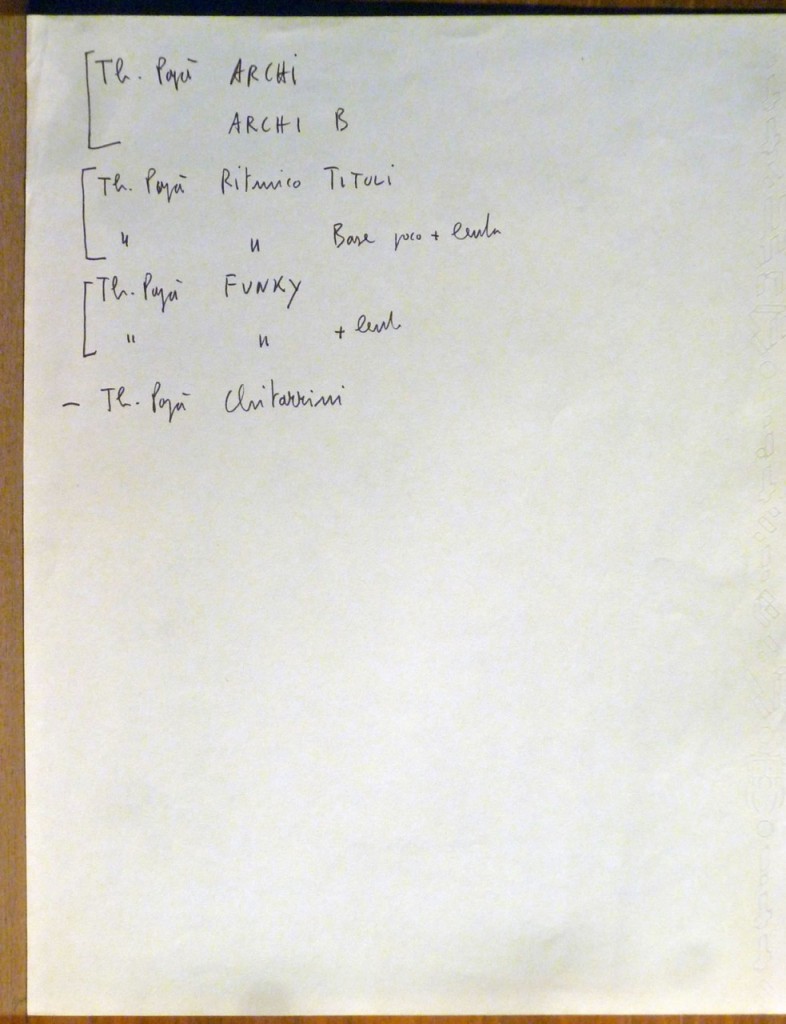 Th. Papà ARCHi
ARCHI B
Th. Papà Ritmico TiTOLi
" " Base poco + lenta
Th. Papà FUNKY
" " + lent
- Th. Papà Chitarrini